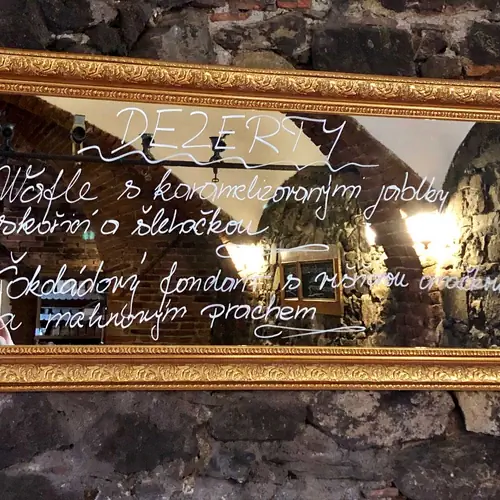 DEZERTY
Wafle s karamelizovanými jablky
skořicí a šlehačkou
Čokoládový fondant s višňovou omáčkou
a malinovým prachem